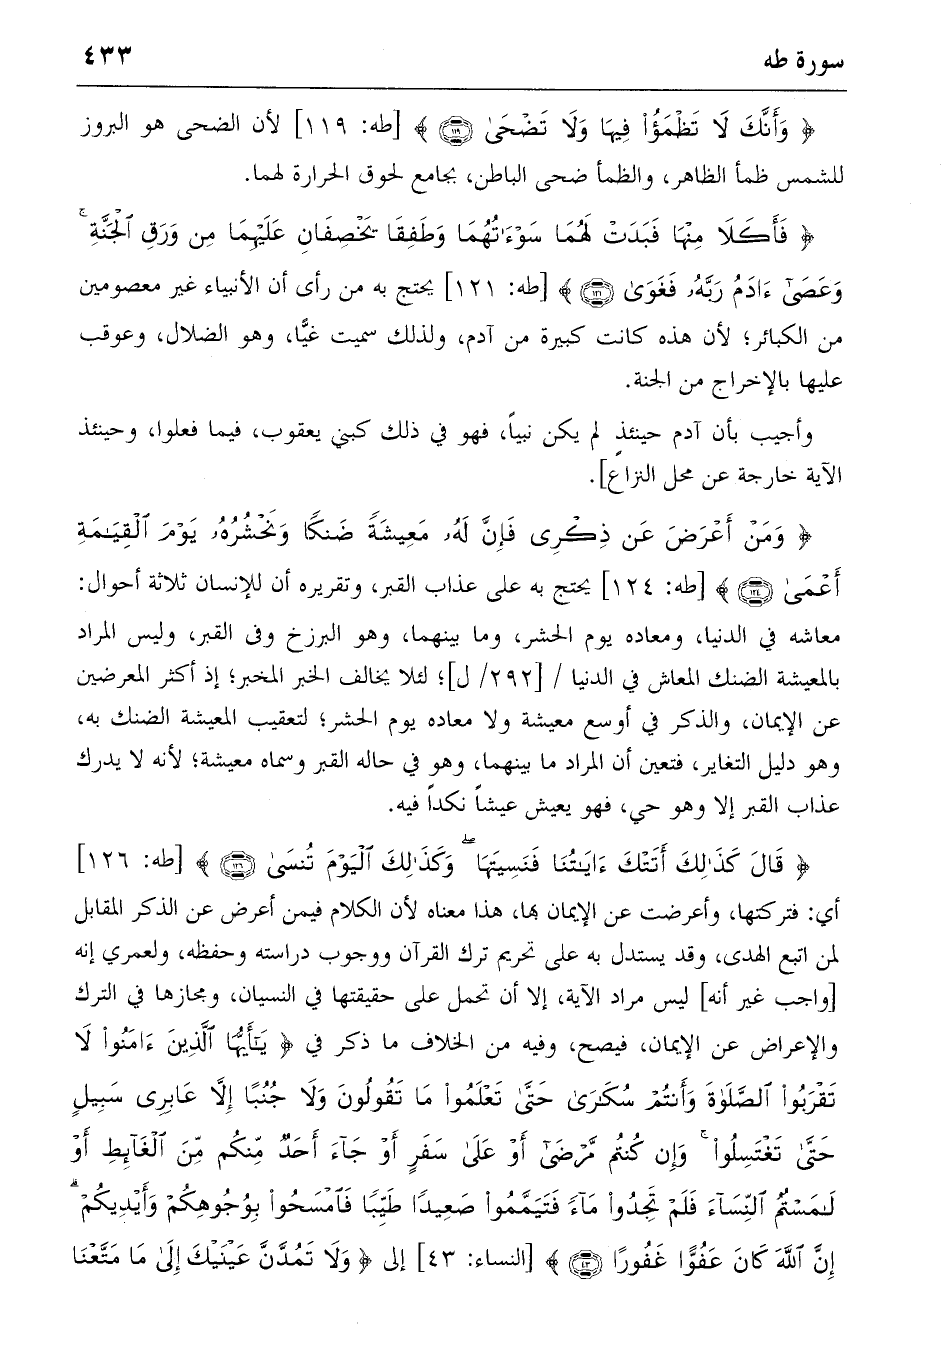 سورة طه ٤٣٣
﴿ وَأَنَّكَ لَا تَظْمَؤُاْ فِيهَا وَلَا تَضْحَىٰ ﴿١١٩﴾ ﴾ [طه: ١١٩] لأن الضحى هو البروز
للشمس ظمأ الظاهر، والظمأ ضحى الباطن، بجامع لحوق الحرارة لهما.
﴿ فَأَكَلَا مِنْهَا فَبَدَتْ لَهُمَا سَوْءَٰتُهُمَا وَطَفِقَا يَخْصِفَانِ عَلَيْهِمَا مِن وَرَقِ ٱلْجَنَّةِ ۚ
وَعَصَىٰٓ ءَادَمُ رَبَّهُۥ فَغَوَىٰ ﴿١٢١﴾ ﴾ [طه: ١٢١] يحتج به من رأى أن الأنبياء غير معصومين
من الكبائر؛ لأن هذه كانت كبيرة من آدم، ولذلك سميت غيًّا، وهو الضلال، وعوقب
عليها بالإخراج من الجنة.
وأجيب بأن آدم حينئذٍ لم يكن نبياً، فهو في ذلك كبني يعقوب، فيما فعلوا، وحينئذ
الآية خارجة عن محل النزاع].
﴿ وَمَنْ أَعْرَضَ عَن ذِكْرِى فَإِنَّ لَهُۥ مَعِيشَةً ضَنكًا وَنَحْشُرُهُۥ يَوْمَ ٱلْقِيَـٰمَةِ
أَعْمَىٰ ﴿١٢٤﴾ ﴾ [طه: ١٢٤] يحتج به على عذاب القبر، وتقريره أن للإنسان ثلاثة أحوال:
معاشه في الدنيا، ومعاده يوم الحشر، وما بينهما، وهو البرزخ وفى القبر، وليس المراد
بالمعيشة الضنك المعاش في الدنيا / [٢٩٢/ ل]؛ لئلا يخالف الخبر المخبر؛ إذ أكثر المعرضين
عن الإيمان، والذكر في أوسع معيشة ولا معاده يوم الحشر؛ لتعقيب المعيشة الضنك به،
وهو دليل التغاير، فتعين أن المراد ما بينهما، وهو في حاله القبر وسماه معيشة؛ لأنه لا يدرك
عذاب القبر إلا وهو حي، فهو يعيش عيشاً نكداً فيه.
﴿ قَالَ كَذَٰلِكَ أَتَتْكَ ءَايَـٰتُنَا فَنَسِيتَهَا ۖ وَكَذَٰلِكَ ٱلْيَوْمَ تُنسَىٰ ﴿١٢٦﴾ ﴾ [طه: ١٢٦]
أي: فتركتها، وأعرضت عن الإيمان بها، هذا معناه لأن الكلام فيمن أعرض عن الذكر المقابل
لمن اتبع الهدى، وقد يستدل به على تحريم ترك القرآن ووجوب دراسته وحفظه، ولعمري إنه
[واجب غير أنه] ليس مراد الآية، إلا أن تحمل على حقيقتها في النسيان، ومجازها في الترك
والإعراض عن الإيمان، فيصح، وفيه من الخلاف ما ذكر في ﴿ يَـٰٓأَيُّهَا ٱلَّذِينَ ءَامَنُواْ لَا
تَقْرَبُواْ ٱلصَّلَوٰةَ وَأَنتُمْ سُكَـٰرَىٰ حَتَّىٰ تَعْلَمُواْ مَا تَقُولُونَ وَلَا جُنُبًا إِلَّا عَابِرِى سَبِيلٍ
حَتَّىٰ تَغْتَسِلُواْ ۚ وَإِن كُنتُم مَّرْضَىٰٓ أَوْ عَلَىٰ سَفَرٍ أَوْ جَآءَ أَحَدٌ مِّنكُم مِّنَ ٱلْغَآئِطِ أَوْ
لَـٰمَسْتُمُ ٱلنِّسَآءَ فَلَمْ تَجِدُواْ مَآءً فَتَيَمَّمُواْ صَعِيدًا طَيِّبًا فَٱمْسَحُواْ بِوُجُوهِكُمْ وَأَيْدِيكُمْ ۗ
إِنَّ ٱللَّهَ كَانَ عَفُوًّا غَفُورًا ﴿٤٣﴾ ﴾ [النساء: ٤٣] إلى ﴿ وَلَا تَمُدَّنَّ عَيْنَيْكَ إِلَىٰ مَا مَتَّعْنَا